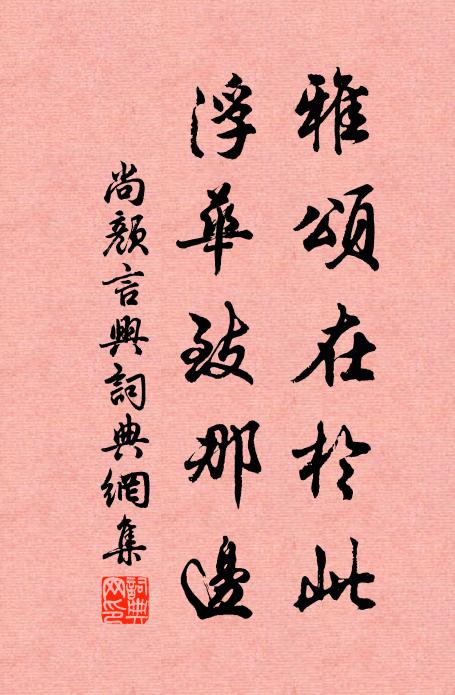 雅頌在於此
浮華致那邊
尚顏言興詞典網集
詞典網印